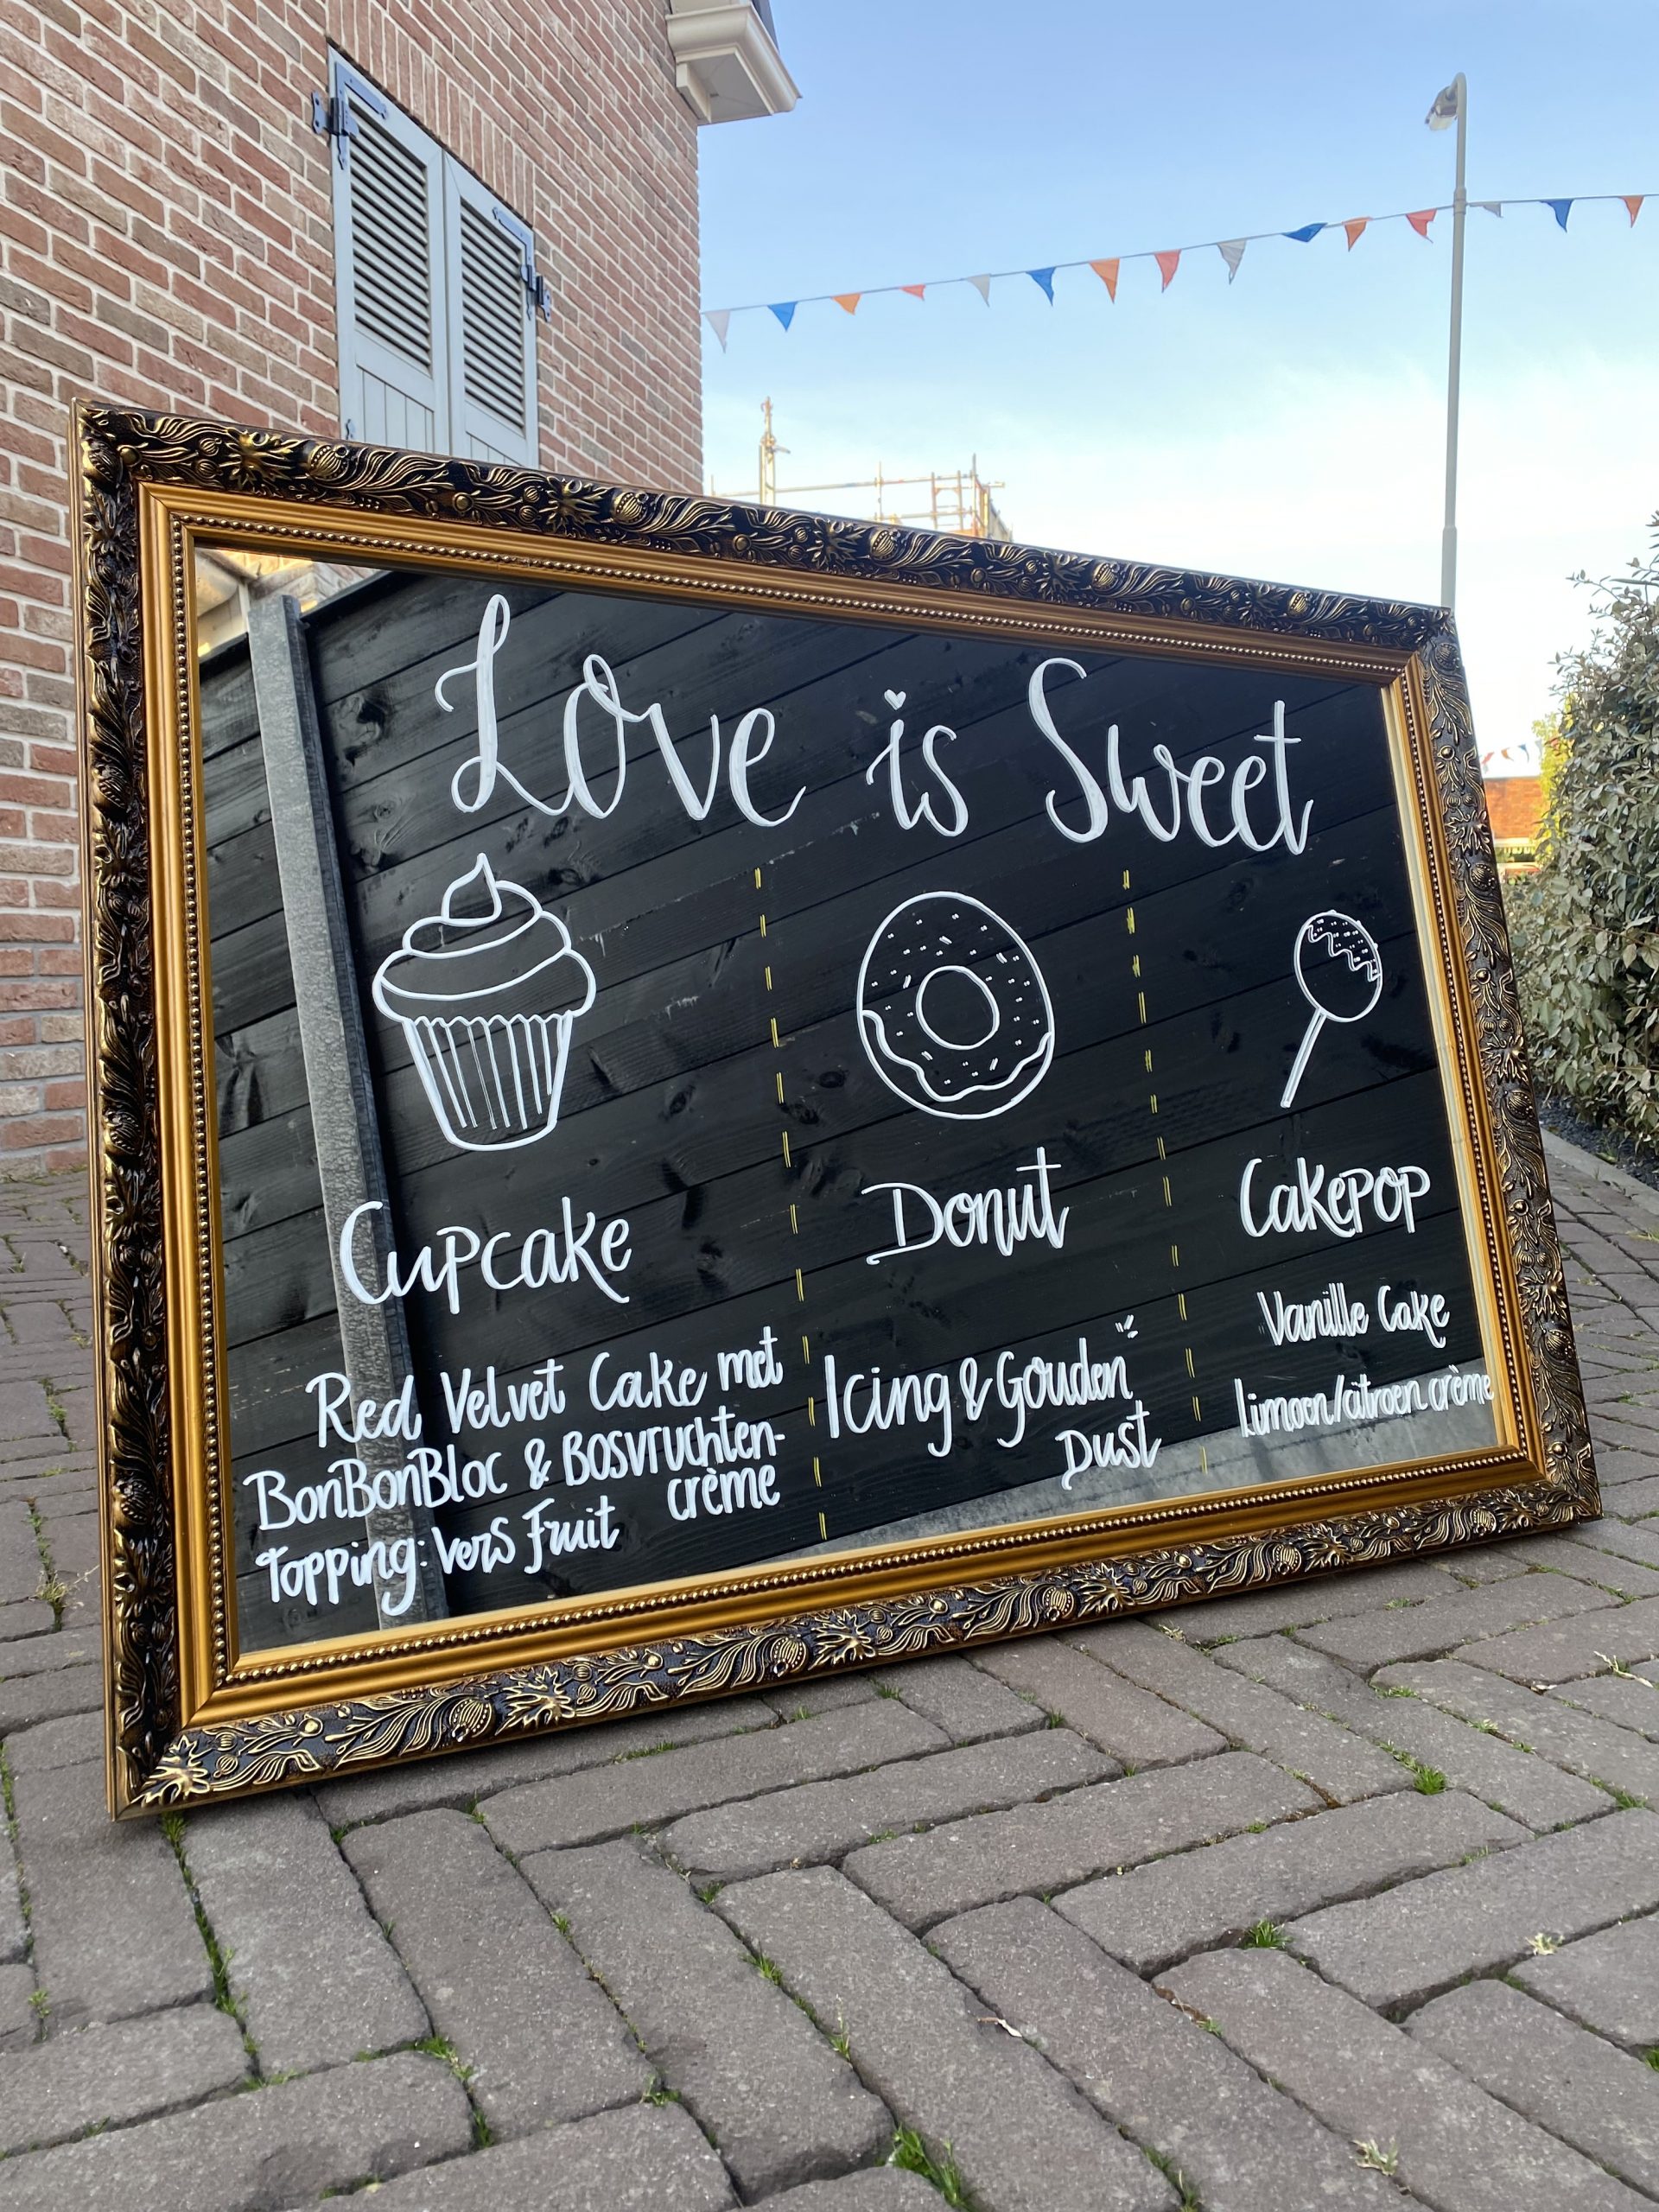 Love is Sweet
Cupcake
Red Velvet Cake met
BonBonBloc & Bosvruchten-
crème
Topping: Vers Fruit
Donut
Icing & Gouden
Dust
Cakepop
Vanille Cake
limoen/citroen crème